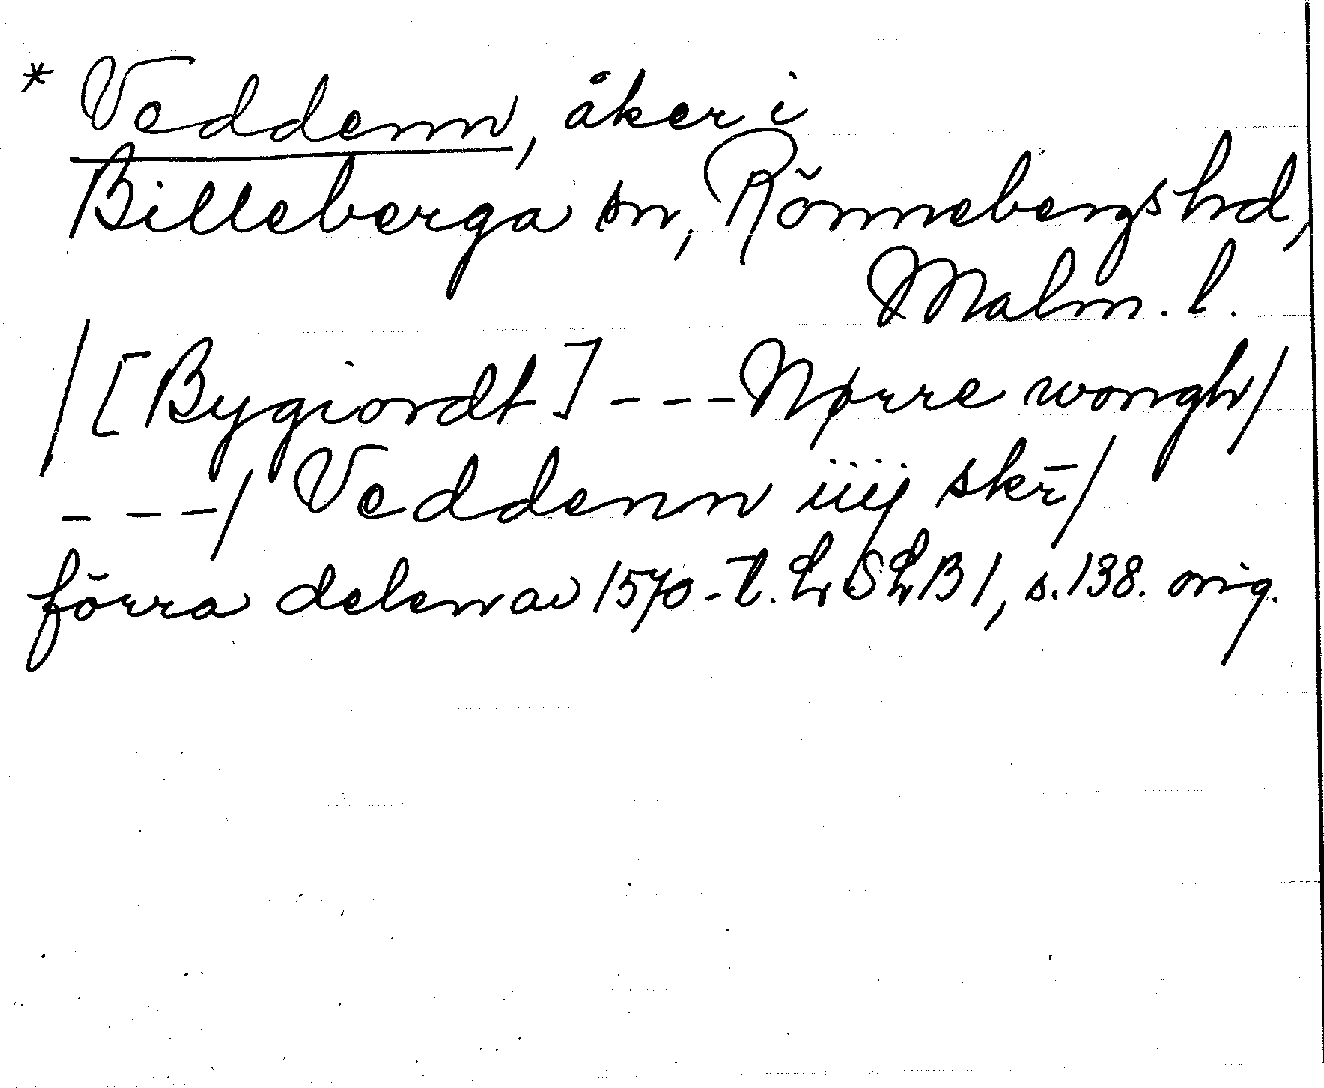 * Veddenn, åker i
Billeberga sn, Rönnebergs hd,
Malm. l.
/ [Bygiordt] --- Nørre wongh/
---/ Veddenn iiij skr̄/
förra delen av 1570-t. LSLB 1, s. 138. orig.